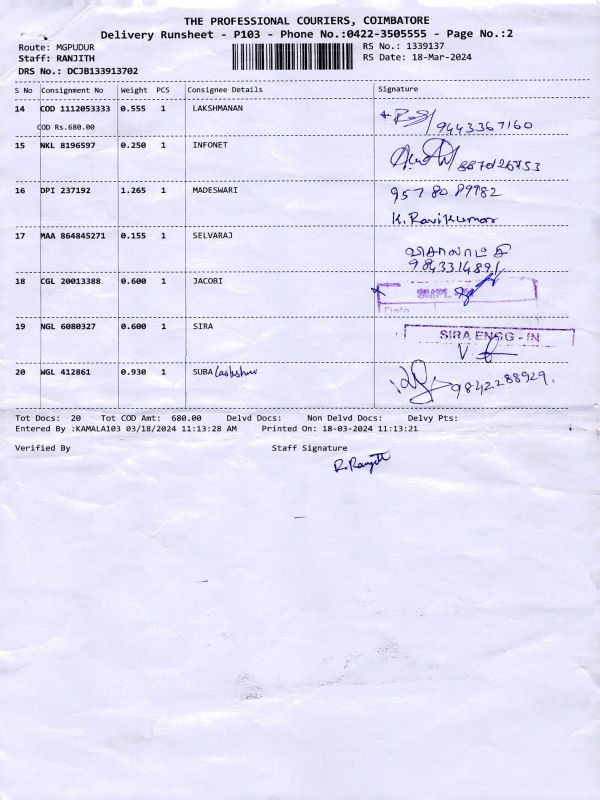 THE PROFESSIONAL COURIERS, COIMBATORE
Delivery Runsheet - P103 - Phone No.:0422-3505555 - Page No.:2
Route: MGPUDUR
RS No.: 1339137
Staff: RANJITH
RS Date: 18-Mar-2024
DRS No.: DCJB133913702
S No Consignment No Weight PCS Consignee Details Signature
14 COD 1112053333 0.555 1 LAKSHMANAN
COD Rs.680.00
9443367160
15 NKL 8196597 0.250 1 INFONET
16 DPI 237192 1.265 1 MADESWARI 95780 89982
K. Ravikumar
17 MAA 864845271 0.155 1 SELVARAJ
9843314891
18 CGL 20013388 0.600 1 JACOBI
SMPL
Date
19 NGL 6080327 0.600 1 SIRA SIRA ENGG - IN
20 WGL 412861 0.930 1 SUBA
9842288929.
Tot Docs: 20 Tot COD Amt: 680.00 Delvd Docs: Non Delvd Docs: Delvy Pts:
Entered By :KAMALA103 03/18/2024 11:13:28 AM Printed On: 18-03-2024 11:13:21
Verified By Staff Signature
R. Ranjith